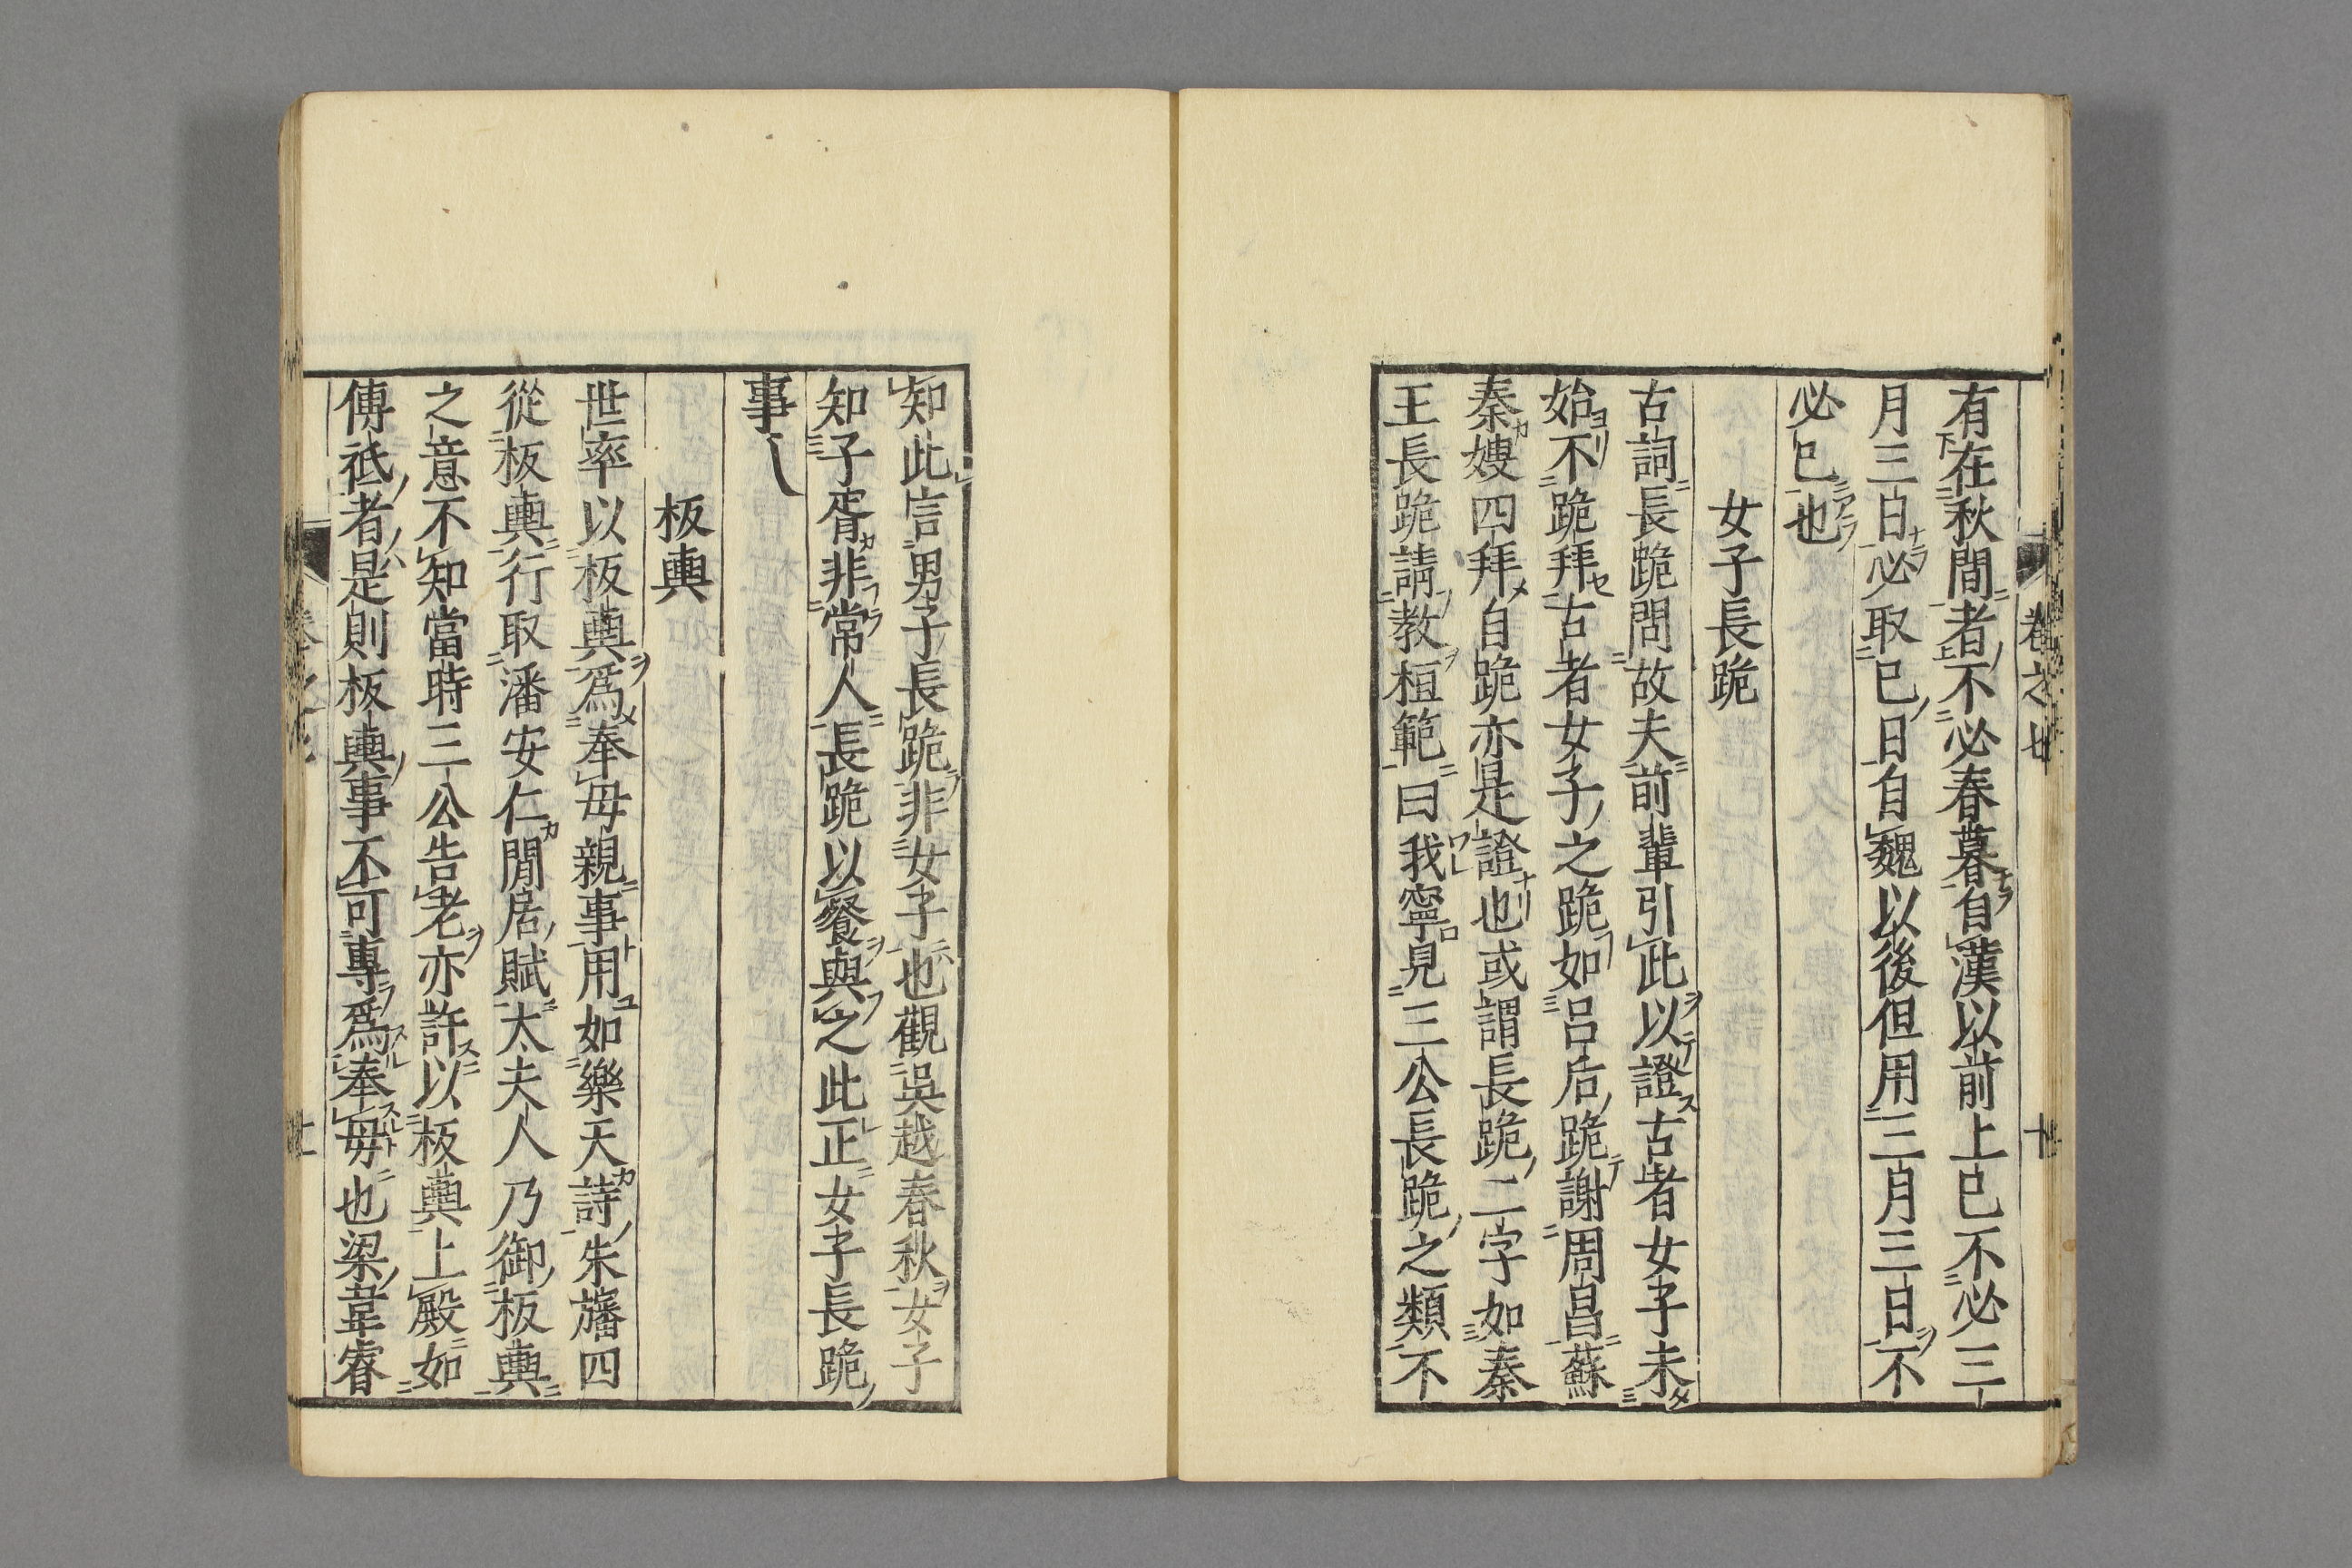 有在秋間者不必春暮自漢以前上巳不必三
月三日必取巳日自魏以後但用三月三日不
必巳也
女子長跪
古詞長跪問故夫前輩引此以證古者女子未
始不跪拜古者女子之跪如呂后跪謝周昌蘇
秦嫂四拜自跪亦是證也或謂長跪二字如秦
王長跪請教桓範曰我寧見三公長跪之類不
知此言男子長跪非女子也觀吳越春秋女子
知子胥非常人長跪以餐與之此正女子長跪
事
板輿
世率以板輿爲奉母親事用如樂天詩朱旛四
從板輿行取潘安仁閒居賦太夫人乃御板輿
之意不知當時三公告老亦許以板輿上殿如
傅祗者是則板輿事不可專爲奉母也梁韋睿